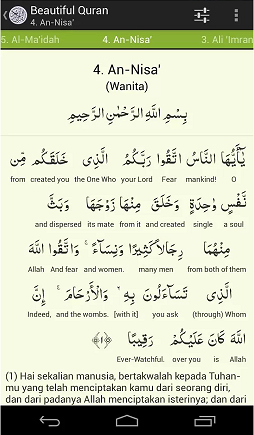 Beautiful Quran
4. An-Nisa'
5. Al-Ma'idah 4. An-Nisa' 3. Ali 'Imran
4. An-Nisa'
(Wanita)
بِسْمِ اللَّهِ الرَّحْمَٰنِ الرَّحِيمِ
يَٰٓأَيُّهَا النَّاسُ اتَّقُوا رَبَّكُمُ الَّذِى خَلَقَكُم مِّن
from created you the One Who your Lord Fear mankind! O
نَّفْسٍ وَٰحِدَةٍ وَخَلَقَ مِنْهَا زَوْجَهَا وَبَثَّ
and dispersed its mate from it and created single a soul
مِنْهُمَا رِجَالًا كَثِيرًا وَنِسَآءً ۚ وَاتَّقُوا اللَّهَ
Allah And fear and women. many men from both of them
الَّذِى تَسَآءَلُونَ بِهِۦ وَالْأَرْحَامَ ۚ إِنَّ
Indeed, and the wombs. [with it] you ask (through) Whom
اللَّهَ كَانَ عَلَيْكُمْ رَقِيبًا ﴿١﴾
Ever-Watchful. over you is Allah
(1) Hai sekalian manusia, bertakwalah kepada Tuhan-
mu yang telah menciptakan kamu dari seorang diri,
dan dari padanya Allah menciptakan isterinya; dan dari